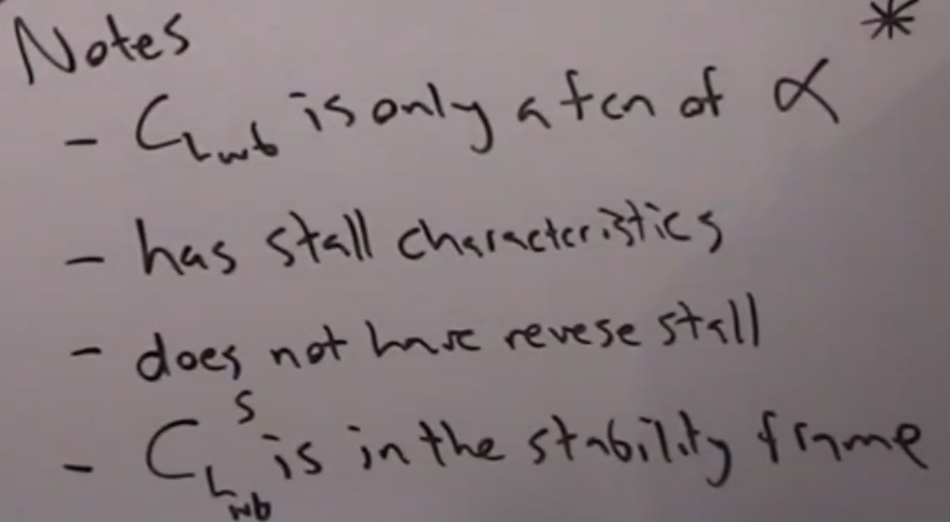 Notes *
- C_Lwb is only a fcn of α
- has stall characteristics
- does not have revese stall
- C_Lwb^s is in the stability frame